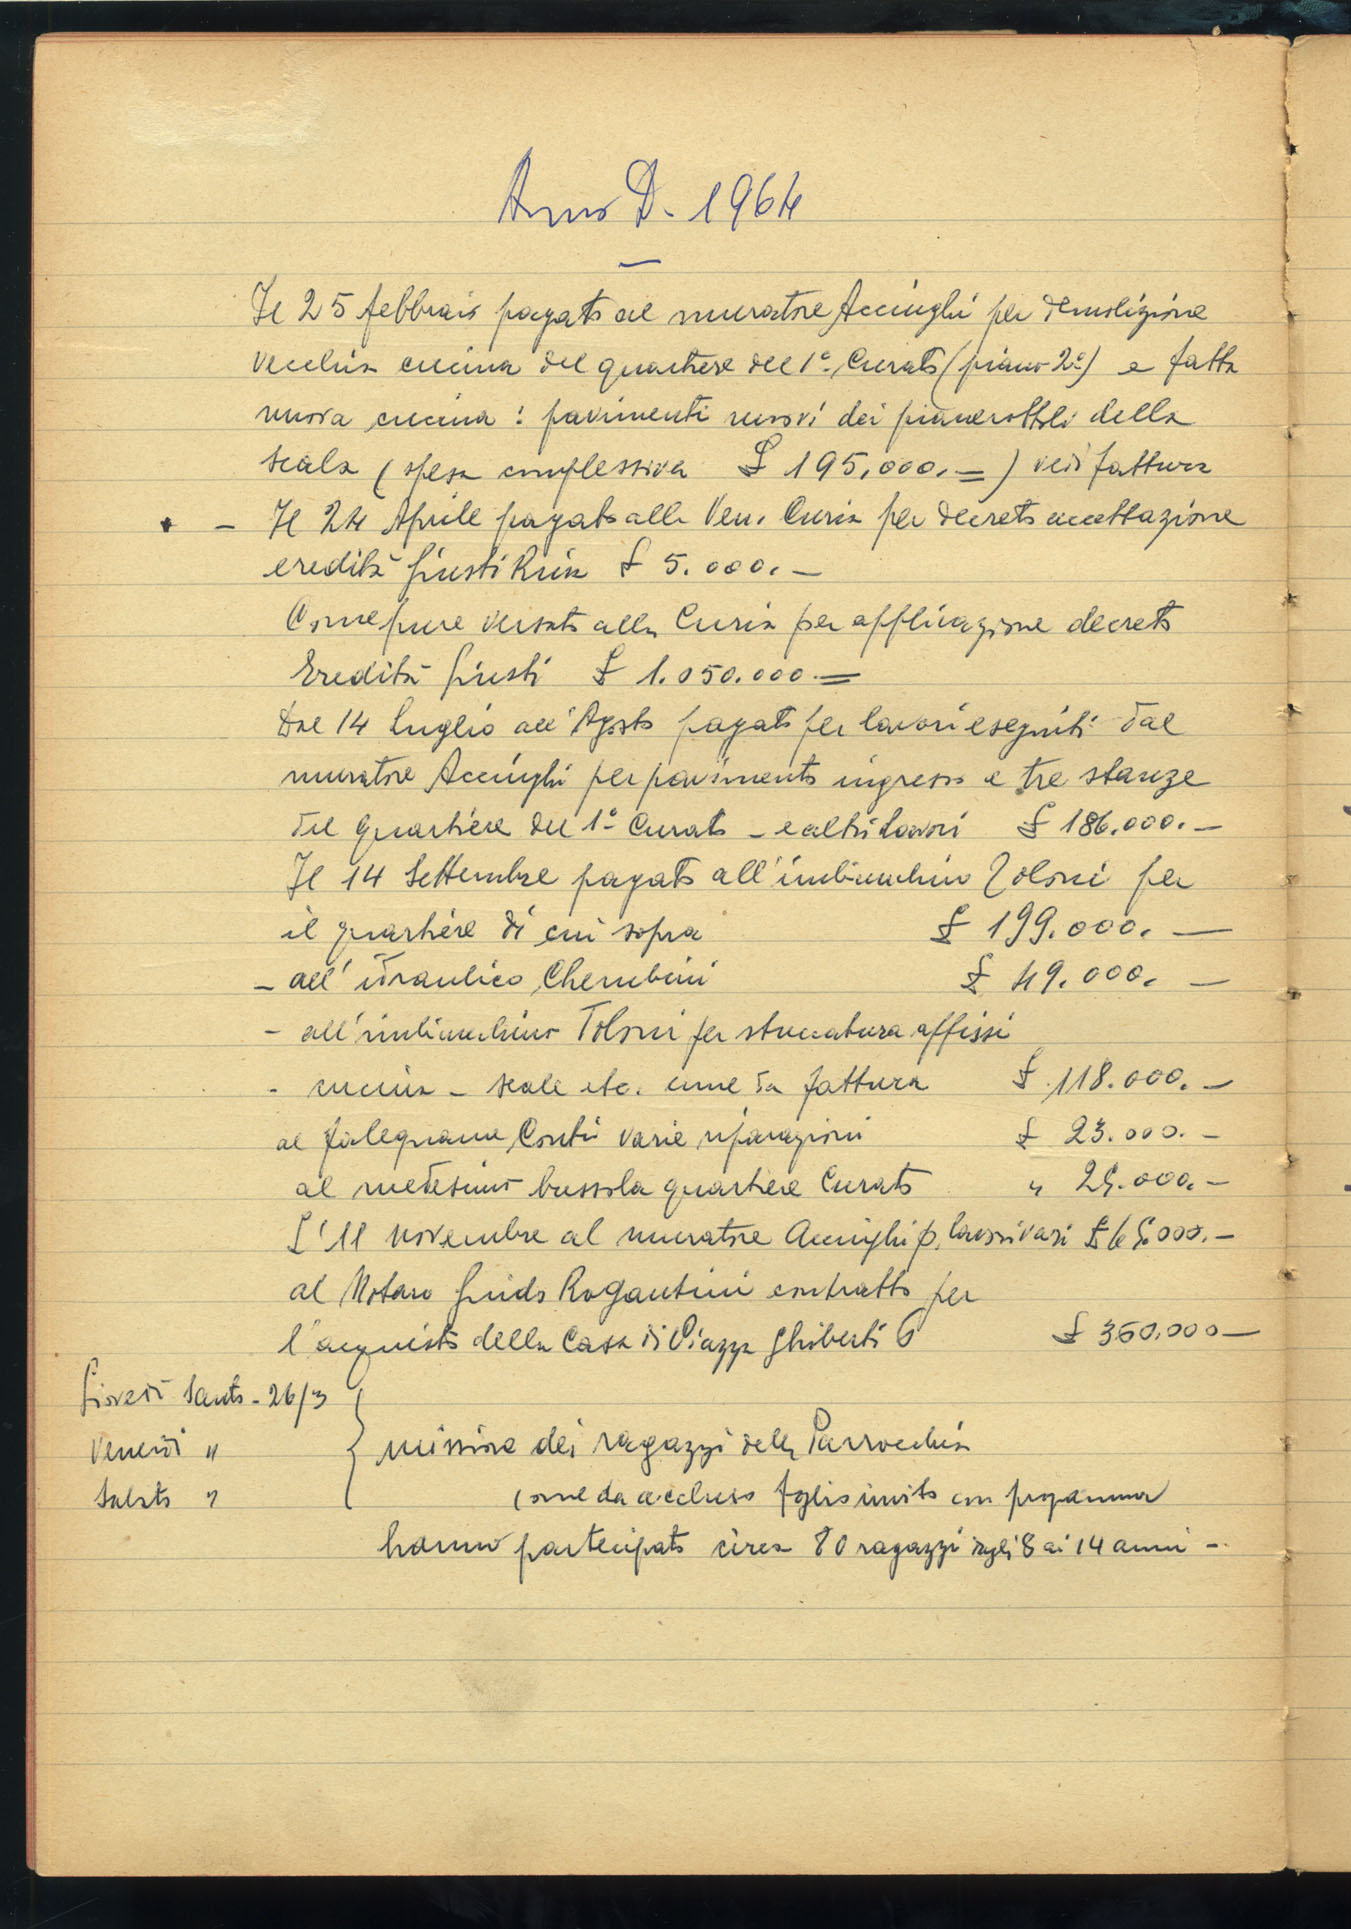 Anno D. 1964
Il 25 febbraio pagato al muratore Accinghi per demolizione
vecchia cucina del quartiere del 1° Curato (piano 2°) e fatta
nuova cucina: pavimenti nuovi dei pianerottoli della
scala (spesa complessiva £ 195.000.=) vedi fattura
- Il 24 Aprile pagato alla Ven. Curia per decreto accettazione
eredità Giusti £ 5.000.-
Come pure versato alla Curia per applicazione decreto
Eredità Giusti £ 1.050.000.=
Dal 14 Luglio all'Agosto pagato per lavori eseguiti dal
muratore Accinghi per pavimento ingresso e tre stanze
del quartiere del 1° Curato - e altri lavori £ 186.000.-
Il 14 Settembre pagato all'imbianchino Toloni per
il quartiere di cui sopra £ 199.000.-
- all'idraulico Cherubini £ 49.000.-
- all'imbianchino Toloni per stuccatura affissi
- cucina - scale etc. come da fattura £ 118.000.-
al falegname Conti varie riparazioni £ 23.000.-
al medesimo bussola quartiere Curato " 25.000.-
L'11 Novembre al muratore Accinghi p. lavori vari £ 65.000.-
al Notaro Guido Rogantini contratto per
l'acquisto della Casa di Piazza Ghiberti 6 £ 360.000-
Giovedì Santo - 26/3
Venerdì "
Sabato "
missione dei ragazzi della Parrocchia
come da accluso foglio invito con programma
hanno partecipato circa 80 ragazzi dagli 8 ai 14 anni -